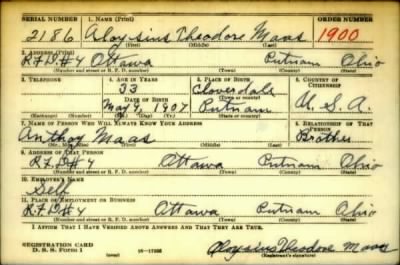 SERIAL NUMBER 1. NAME (Print) ORDER NUMBER
2186 Aloysius Theodore Maas 1900
(First) (Middle) (Last)
2. ADDRESS (Print)
R.F.D.#4 Ottawa Putnam Ohio
(Number and street or R. F. D. number) (Town) (County) (State)
3. TELEPHONE 4. AGE IN YEARS 5. PLACE OF BIRTH 6. COUNTRY OF CITIZENSHIP
33 Cloverdale
DATE OF BIRTH (Town or county)
May 9, 1907 Putnam U.S.A.
(Exchange) (Number) (Mo.) (Day) (Yr.) (State or country)
7. NAME OF PERSON WHO WILL ALWAYS KNOW YOUR ADDRESS 8. RELATIONSHIP OF THAT PERSON
Anthoy Maas Brother
(Mr., Mrs., Miss) (First) (Middle) (Last)
9. ADDRESS OF THAT PERSON
R.F.D#4 Ottawa Putnam Ohio
(Number and street or R. F. D. number) (Town) (County) (State)
10. EMPLOYER'S NAME
Self
11. PLACE OF EMPLOYMENT OR BUSINESS
R.F.D#4 Ottawa Putnam Ohio
(Number and street or R. F. D. number) (Town) (County) (State)
I AFFIRM THAT I HAVE VERIFIED ABOVE ANSWERS AND THAT THEY ARE TRUE.
REGISTRATION CARD
D. S. S. Form 1 (over) 16—17105 Aloysius Theodore Maas
(Registrant's signature)